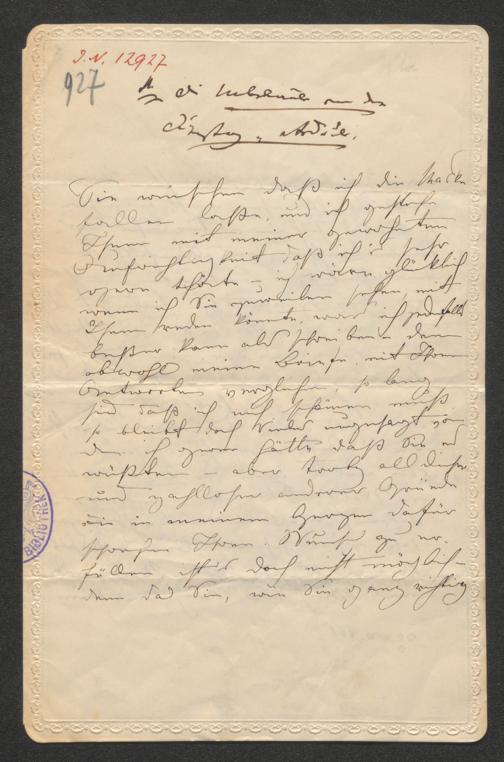 I.N. 12927
927
An die Unbekannte von der
Dienstag
Sie wünschen daß ich die Maske
fallen laße, und ich gestehe
Ihnen mit meiner gewohnten
Aufrichtigkeit daß ich's sehr
gern thäte – ich wäre glücklich
wenn ich Sie zuweilen sehen, mit
Ihnen reden könnte, was ich jedenfalls
beßer kann als schreiben denn
obwohl meine Briefe mit Ihren
Antworten verglichen, so lang
sind daß ich mich schämen muß
so bleibt doch Vieles ungesagt von
dem ich gerne hätte daß Sie es
wüßten – aber trotz all dieser
und zahlloser anderer Gründe
die in meinem Herzen dafür
sprechen Ihren Wunsch zu er-
füllen ist's doch nicht möglich –
denn das Sie, wie Sie ganz richtig
BIBLIOTHEK